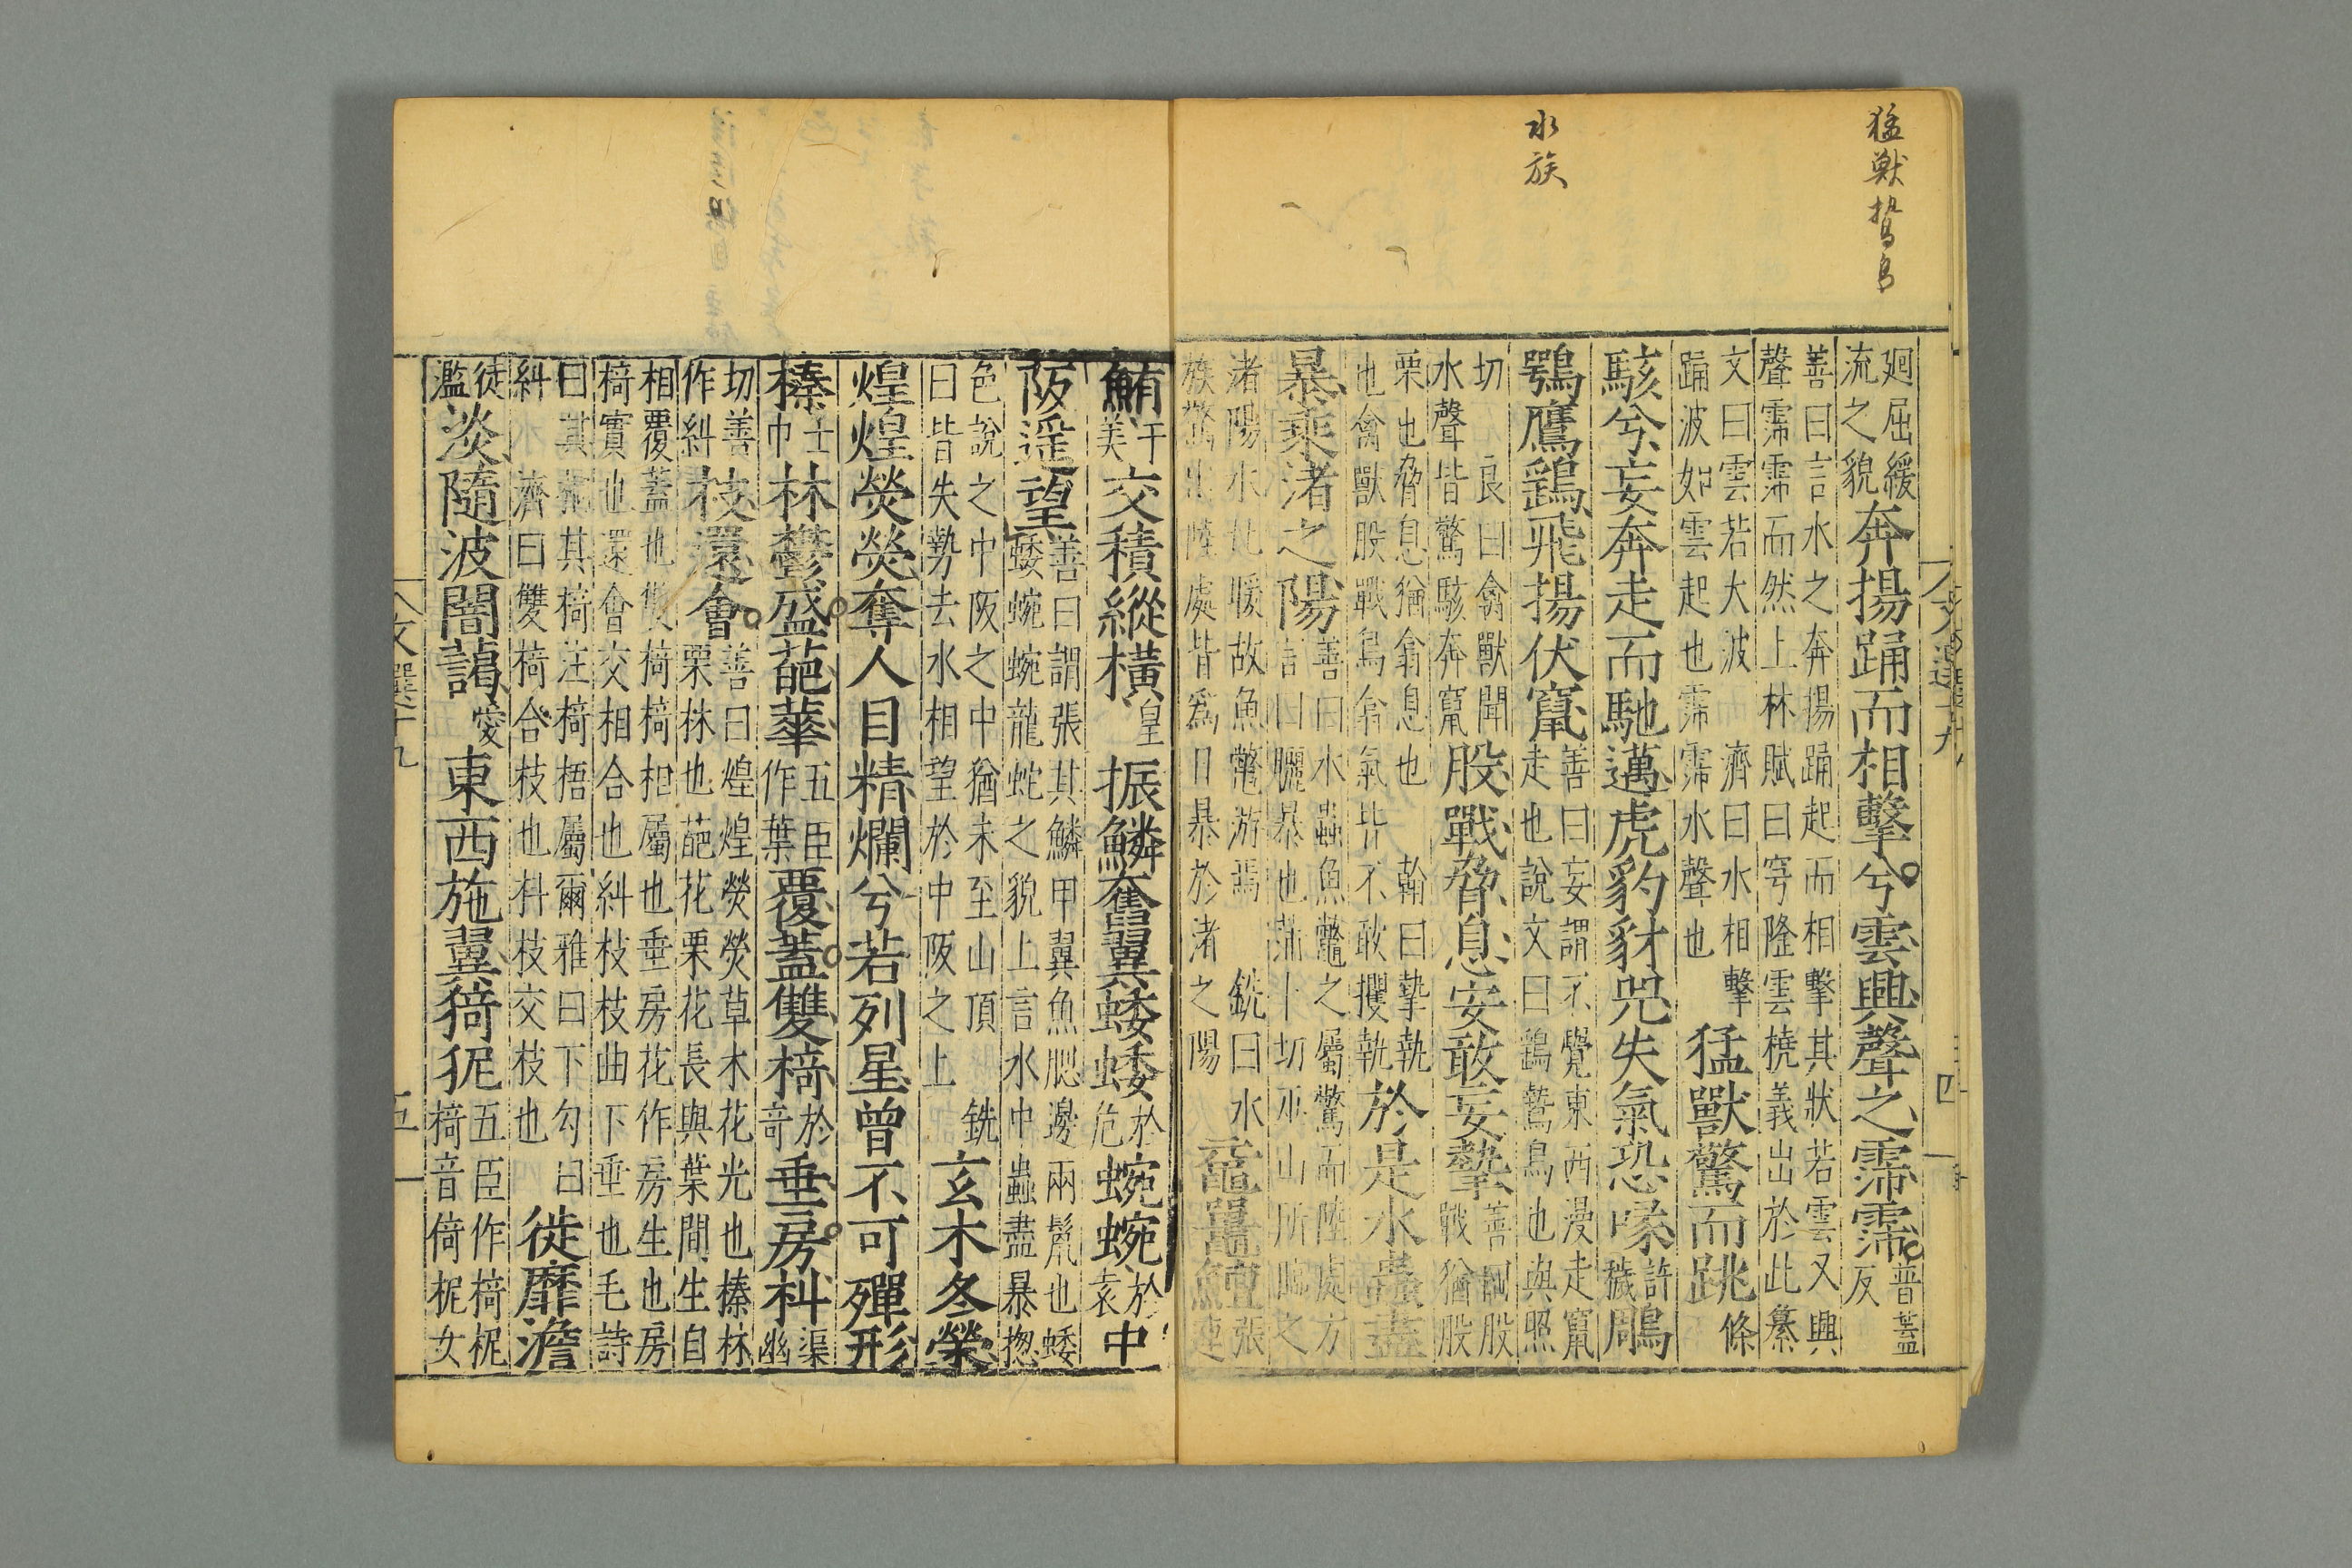 猛獸鷙鳥
水族
廻屈緩流之貌奔揚踊而相擊兮雲興聲之霈霈普蓋反
善曰言水之奔揚踊起而相擊其狀若雲又興
聲霈霈而然上林賦曰穹隆雲橈義出於此纂
文曰雲若大波 濟曰水相擊
踊波如雲起也霈霈水聲也猛獸驚而跳條
駭兮妄奔走而馳邁虎豹豺兕失氣恐喙許穢鵰
鶚鷹鷂飛揚伏竄善曰妄謂不覺東西漫走竄
走也說文曰鷂鷙鳥也與照
切 良曰禽獸聞
水聲皆驚駭奔竄股戰脅息安敢妄摯善曰股戰猶股
栗也脅息猶翕息也 翰曰摯執
也禽獸股戰鳥翕氣皆不敢攫執於是水蟲盡
暴乘渚之陽善曰水蟲魚鼈之屬驚而陸處方
言曰曬暴也蒲卜切巫山所臨之
渚陽水北暖故魚鼈游焉 銑曰水
族驚出陸處皆為日暴於渚之陽黿鼉鱣張連
鮪于美交積縱橫皇振鱗奮翼蜲蜲於危蜿蜿於袁中
阪遥望善曰謂張其鱗甲翼魚腮邊兩鬛也蜲
蜲蜿蜿龍蛇之貌上言水中蟲盡暴揔
色說之中阪之中猶未至山頂 銑
曰皆失勢去水相望於中阪之上玄木冬榮
煌煌熒熒奪人目精爛兮若列星曾不可殫形
榛士巾林鬱盛葩華五臣作葉覆蓋雙椅於奇垂房糾渠幽
切善作糾枝還會善曰煌煌熒熒草木花光也榛林
栗林也葩花栗花長與葉間生自
相覆蓋也雙椅椅柤屬也垂房花作房生也房
椅實也還會交相合也糾枝枝曲下垂也毛詩
曰其桐其椅注椅梧屬爾雅曰下勾曰
糾 濟曰雙椅合枝也糾枝交枝也徙靡澹
徒濫淡隨波闇藹愛東西施翼猗狔五臣作椅柅
椅音倚柅女